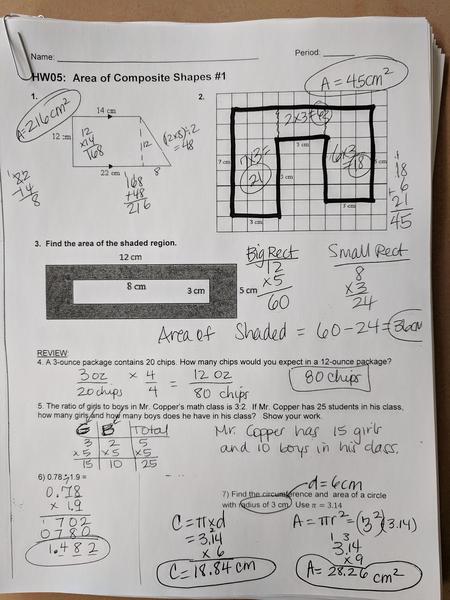 Name: Period:
HW05: Area of Composite Shapes #1
1.
A=216cm²
14 cm
12 cm
12
×14
168
12
(12×8)÷2
=48
22 cm
8
168
+48
216
2.
A = 45cm²
2×3=6
7×3=
21
6×3
=18
7 cm
3 cm
5 cm
3 cm
18
6
+21
45
3. Find the area of the shaded region.
12 cm
8 cm
3 cm
5 cm
Big Rect
12
×5
60
Small Rect
8
×3
24
Area of Shaded = 60-24=36cm
REVIEW:
4. A 3-ounce package contains 20 chips. How many chips would you expect in a 12-ounce package?
3 oz × 4 = 12 oz
20 chips 4 80 chips
80 chips
5. The ratio of girls to boys in Mr. Copper's math class is 3:2. If Mr. Copper has 25 students in his class,
how many girls and how many boys does he have in his class? Show your work.
G B Total
3 2 5
×5 ×5 ×5
15 10 25
Mr. Copper has 15 girls
and 10 boys in his class.
6) 0.78 · 1.9 =
0.78
× 1.9
1702
0780
1.482
d=6cm
7) Find the circumference and area of a circle
with radius of 3 cm. Use π = 3.14
C = πxd
= 3.14
× 6
C= 18.84 cm
A = πr² = (3²)(3.14)
3.14
×9
A= 28.26 cm²